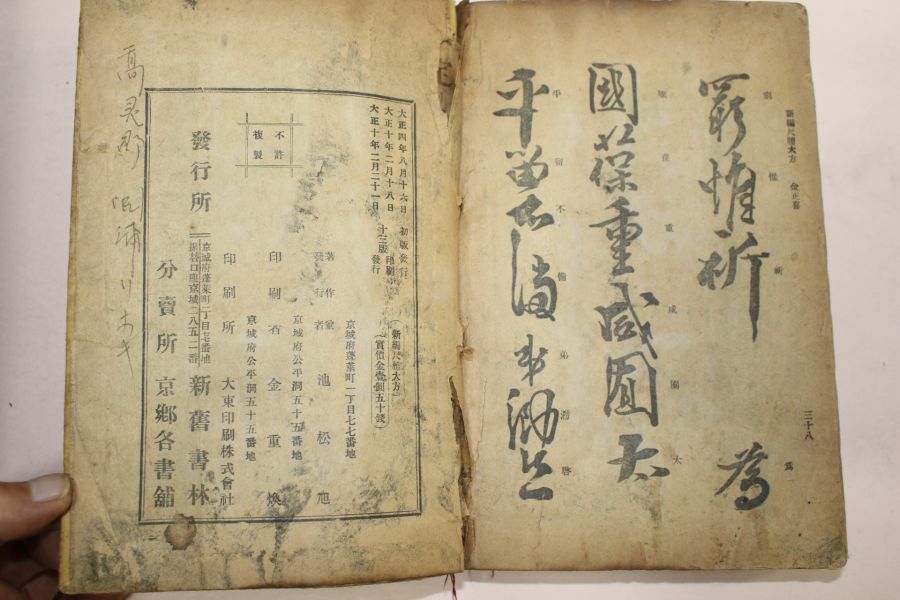 新編尺牘大方
金正喜
三十八
窮惟祈
爲
國葆重咸圓太
平留不備弟
啓
大正四年八月十六日 初版發行
大正十年二月十八日 十三版印刷
大正十年二月二十一日 十三版發行
(新編尺牘大方)
實價金壹圓五十錢
不許複製
京城府蓬萊町一丁目七七番地
著作兼發行者 池松旭
京城府公平洞五十五番地
印刷者 金重煥
京城府公平洞五十五番地
印刷所 大東印刷株式會社
京城府蓬萊町一丁目七七番地
發行所 新舊書林
分賣所 京鄉各書舖